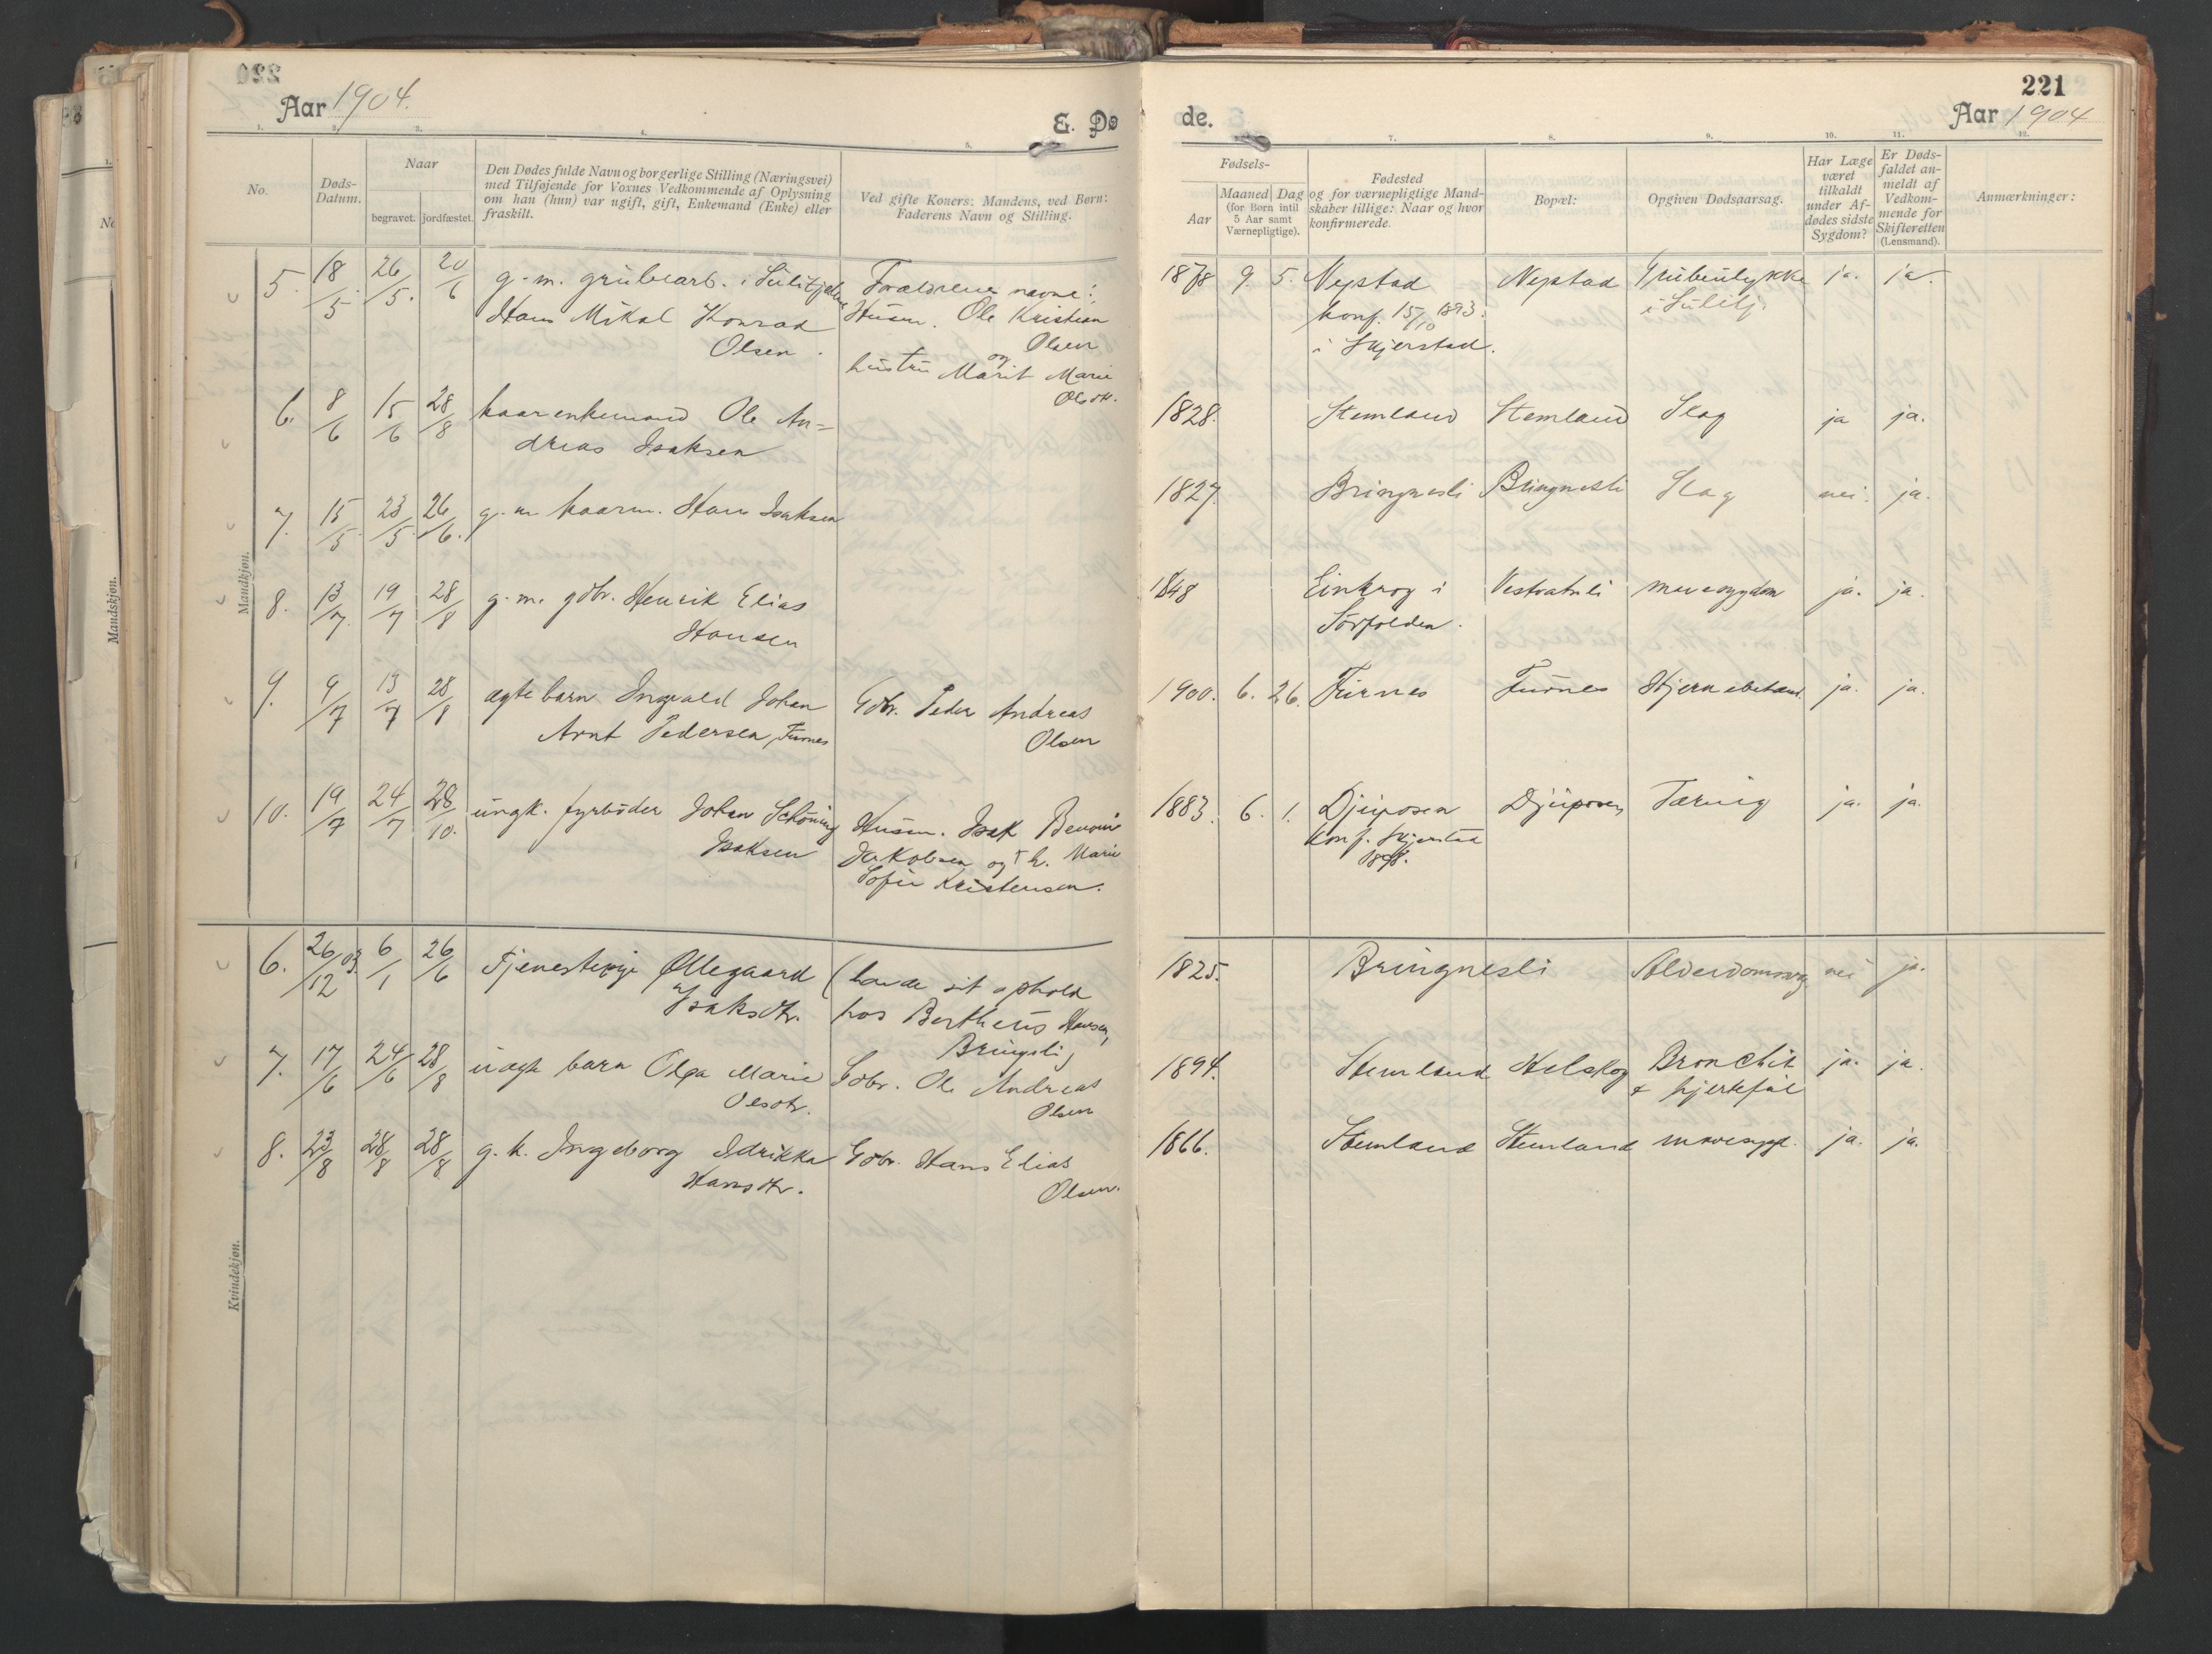 220
Aar 1904.
E. Dø
1. 2. 3. 4. 5.
No.
Døds-
Datum.
Naar
begravet. jordfæstet.
Den Dødes fulde Navn og borgerlige Stilling (Næringsvei)
med Tilføjende for Voxnes Vedkommende af Oplysning
om han (hun) var ugift, gift, Enkemand (Enke) eller
fraskilt.
Ved gifte Koner: Mandens, ved Børn:
Faderens Navn og Stilling.
Mandkjøn.
5. 18/5 26/5. 20/6 g. m. grubearb. i Sulitjelma
Hans Mikal Konrad
Olsen.
Forældrenes navne:
Husm. Ole Kristian
Olsen
og
hustru Marit Marie
Olsdtr.
6. 8/6 15/6 28/8 kaarenkemand Ole An=
dreas Isaksen
7. 15/5 23/5. 26/6. g. m kaarm. Hans Isaksen
8. 13/7 19/7 28/8 g. m. gdbr. Henrik Elias
Hansen
9. 9/7 13/7 28/8 ægte barn Ingvald Johan
Arnt Pedersen, Furnes
Gdbr. Peder Andreas
Olsen
10. 19/7 24/7 28/10. ungk. fyrbøder Johan Schöning
Isaksen
Husm. Isak Benoni
Jakobsen og h. Marie
Sofie Kristensen.
Kvindekjøn.
6. 26/12 03. 6/1 26/6 Tjenestepige Ollegaard
Isaksdtr.
(havde sit ophold
hos Bertheus Hansen,
Bringsli)
7. 17/6 24/6 28/8 uægte barn Olga Marie
Olsdtr.
Gdbr. Ole Andreas
Olsen
8. 23/8 28/8 28/8 g. k. Ingeborg Idrikka
Hansdtr.
Gdbr. Hans Elias
Olsen.
221
de.
Aar 1904
7. 8. 9. 10. 11. 12.
Fødsels-
Aar
Maaned Dag
(for Børn intil
5 Aar samt
Værnepligtige).
Fødested
og for værnepligtige Mand-
skaber tillige: Naar og hvor
konfirmerede.
Bopæl:
Opgiven Dødsaarsag.
Har Læge
været
tilkaldt
under Af-
dødes sidste
Sygdom?
Er Døds-
faldet an-
meldt af
Vedkom-
mende for
Skifteretten
(Lensmand).
Anmærkninger:
1878 9. 5. Nystad Nystad Grubeulykke ja. ja
konf. 15/10 1893. i Sulitj.
i Skjerstad.
1828. Stemland Stemland Slag ja ja.
1827. Bringnesli Bringnesli Slag nei. ja.
1848 Einkrog i Vestvatnli mavesygdom ja. ja.
Sørfolden.
1900. 6. 26. Furnes Furnes Hjernebetænd. ja. ja.
1883. 6. 1. Djuposen Djuposen Tæring ja. ja.
Konf. Skjerstad
1898.
1825. Bringnesli Alderdomssvag nei ja.
1894. Stemland Helskog Bronchit ja. ja.
& hjertefeil
1866. Stemland Stemland mavesygd. ja. ja.
Mandskjøn.